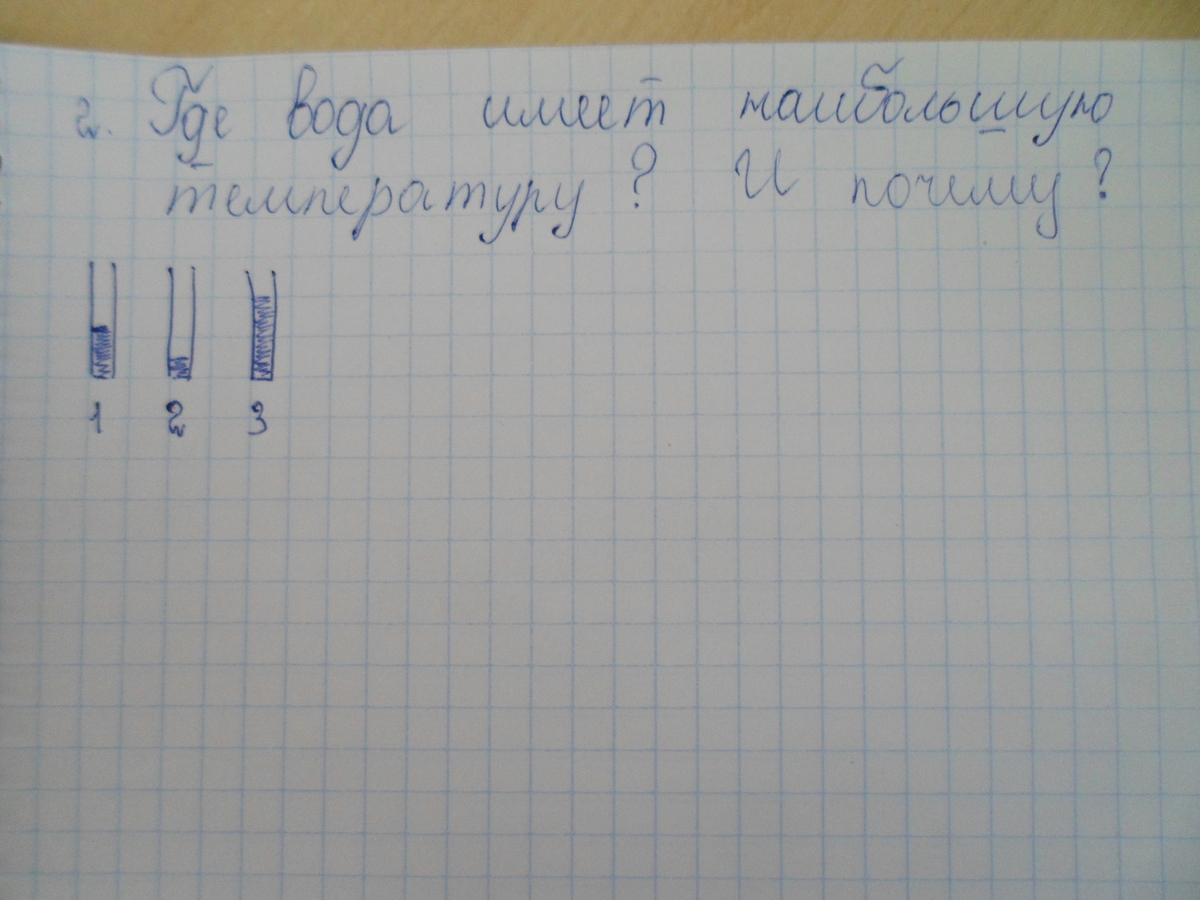 2. Где вода имеет наибольшую
температуру? И почему?
1 2 3